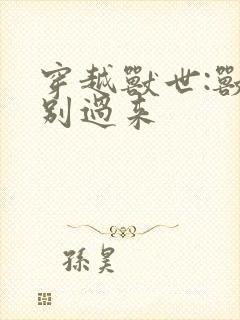 穿越獸世:獸
別過来
孫昊